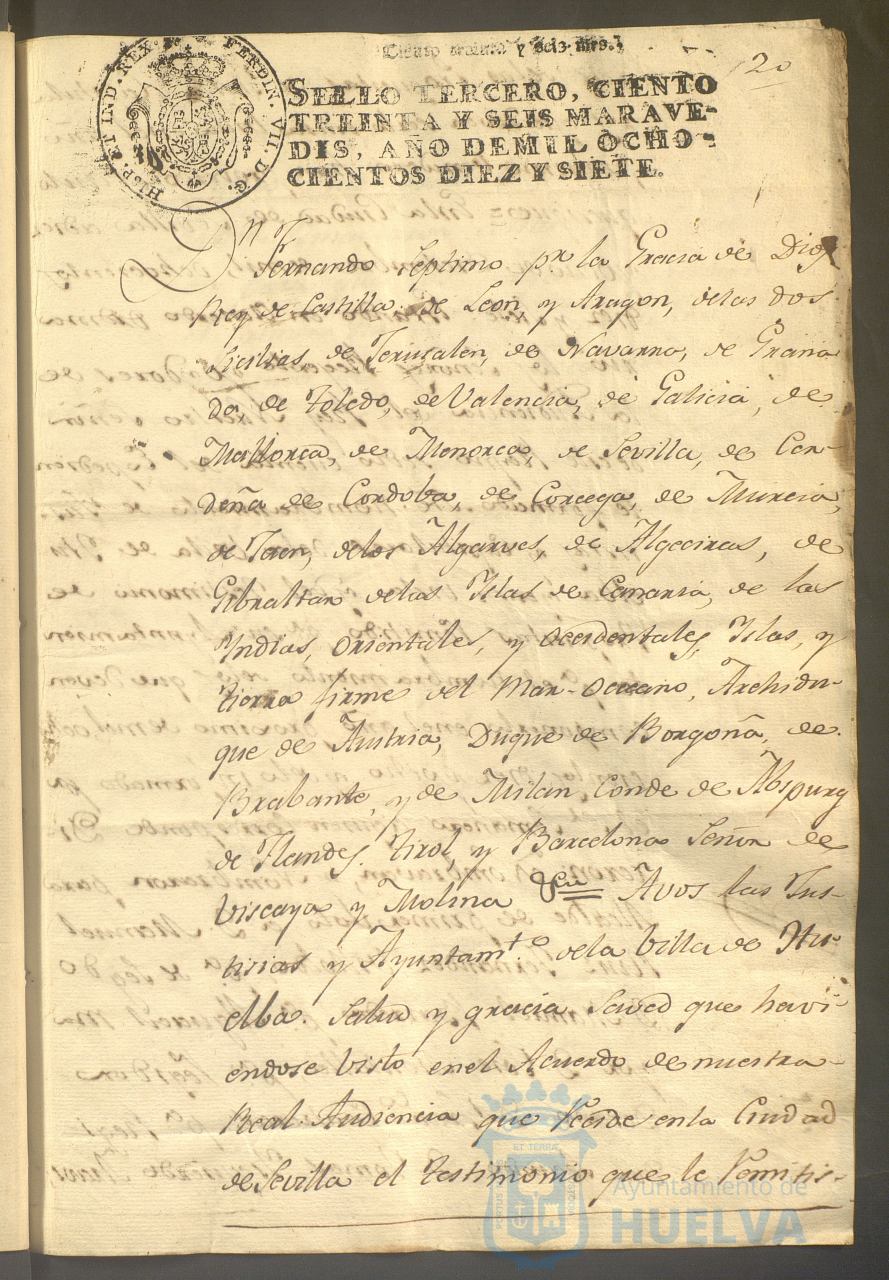 Ciento treinta y seis mrs.
20
HISP. ET IND. REX. FERDIN. VII. D. G.
SELLO TERCERO, CIENTO
TREINTA Y SEIS MARAVE-
DIS, AÑO DE MIL OCHO-
CIENTOS DIEZ Y SIETE.
Dn Fernando Septimo pr. la Gracia de Dios
Rey de Castilla, de Leon, y Aragon, delas dos
Sicilias, de Jerusalen, de Navarra, de Grana
da, de Toledo, de Valencia, de Galicia, de
Mallorca, de Menorca, de Sevilla, de Cer-
deña, de Cordoba, de Corcega, de Murcia,
de Jaen, delos Algarves, de Algeciras, de
Gibraltar, delas Islas de Canaria, de las
Indias, orientales, y occidentales, Islas, y
tierra firme del Mar-Occeano, Archidu-
que de Austria, Duque de Borgoña, de
Brabante, y de Milan Conde de Abspurg
de Flandes, tirol, y Barcelona Señor de
Viscaya y Molina &ca = Avos las Jus-
tisias y Ayuntamto. dela Villa de Hu-
elba. Salud y gracia Saved que havi-
endose bisto enel Acuerdo de nuestra
Real Audiencia que Recide enla Ciudad
de Sevilla el testimonio que le Remitis-
ET TERRA
Ayuntamiento de
HUELVA